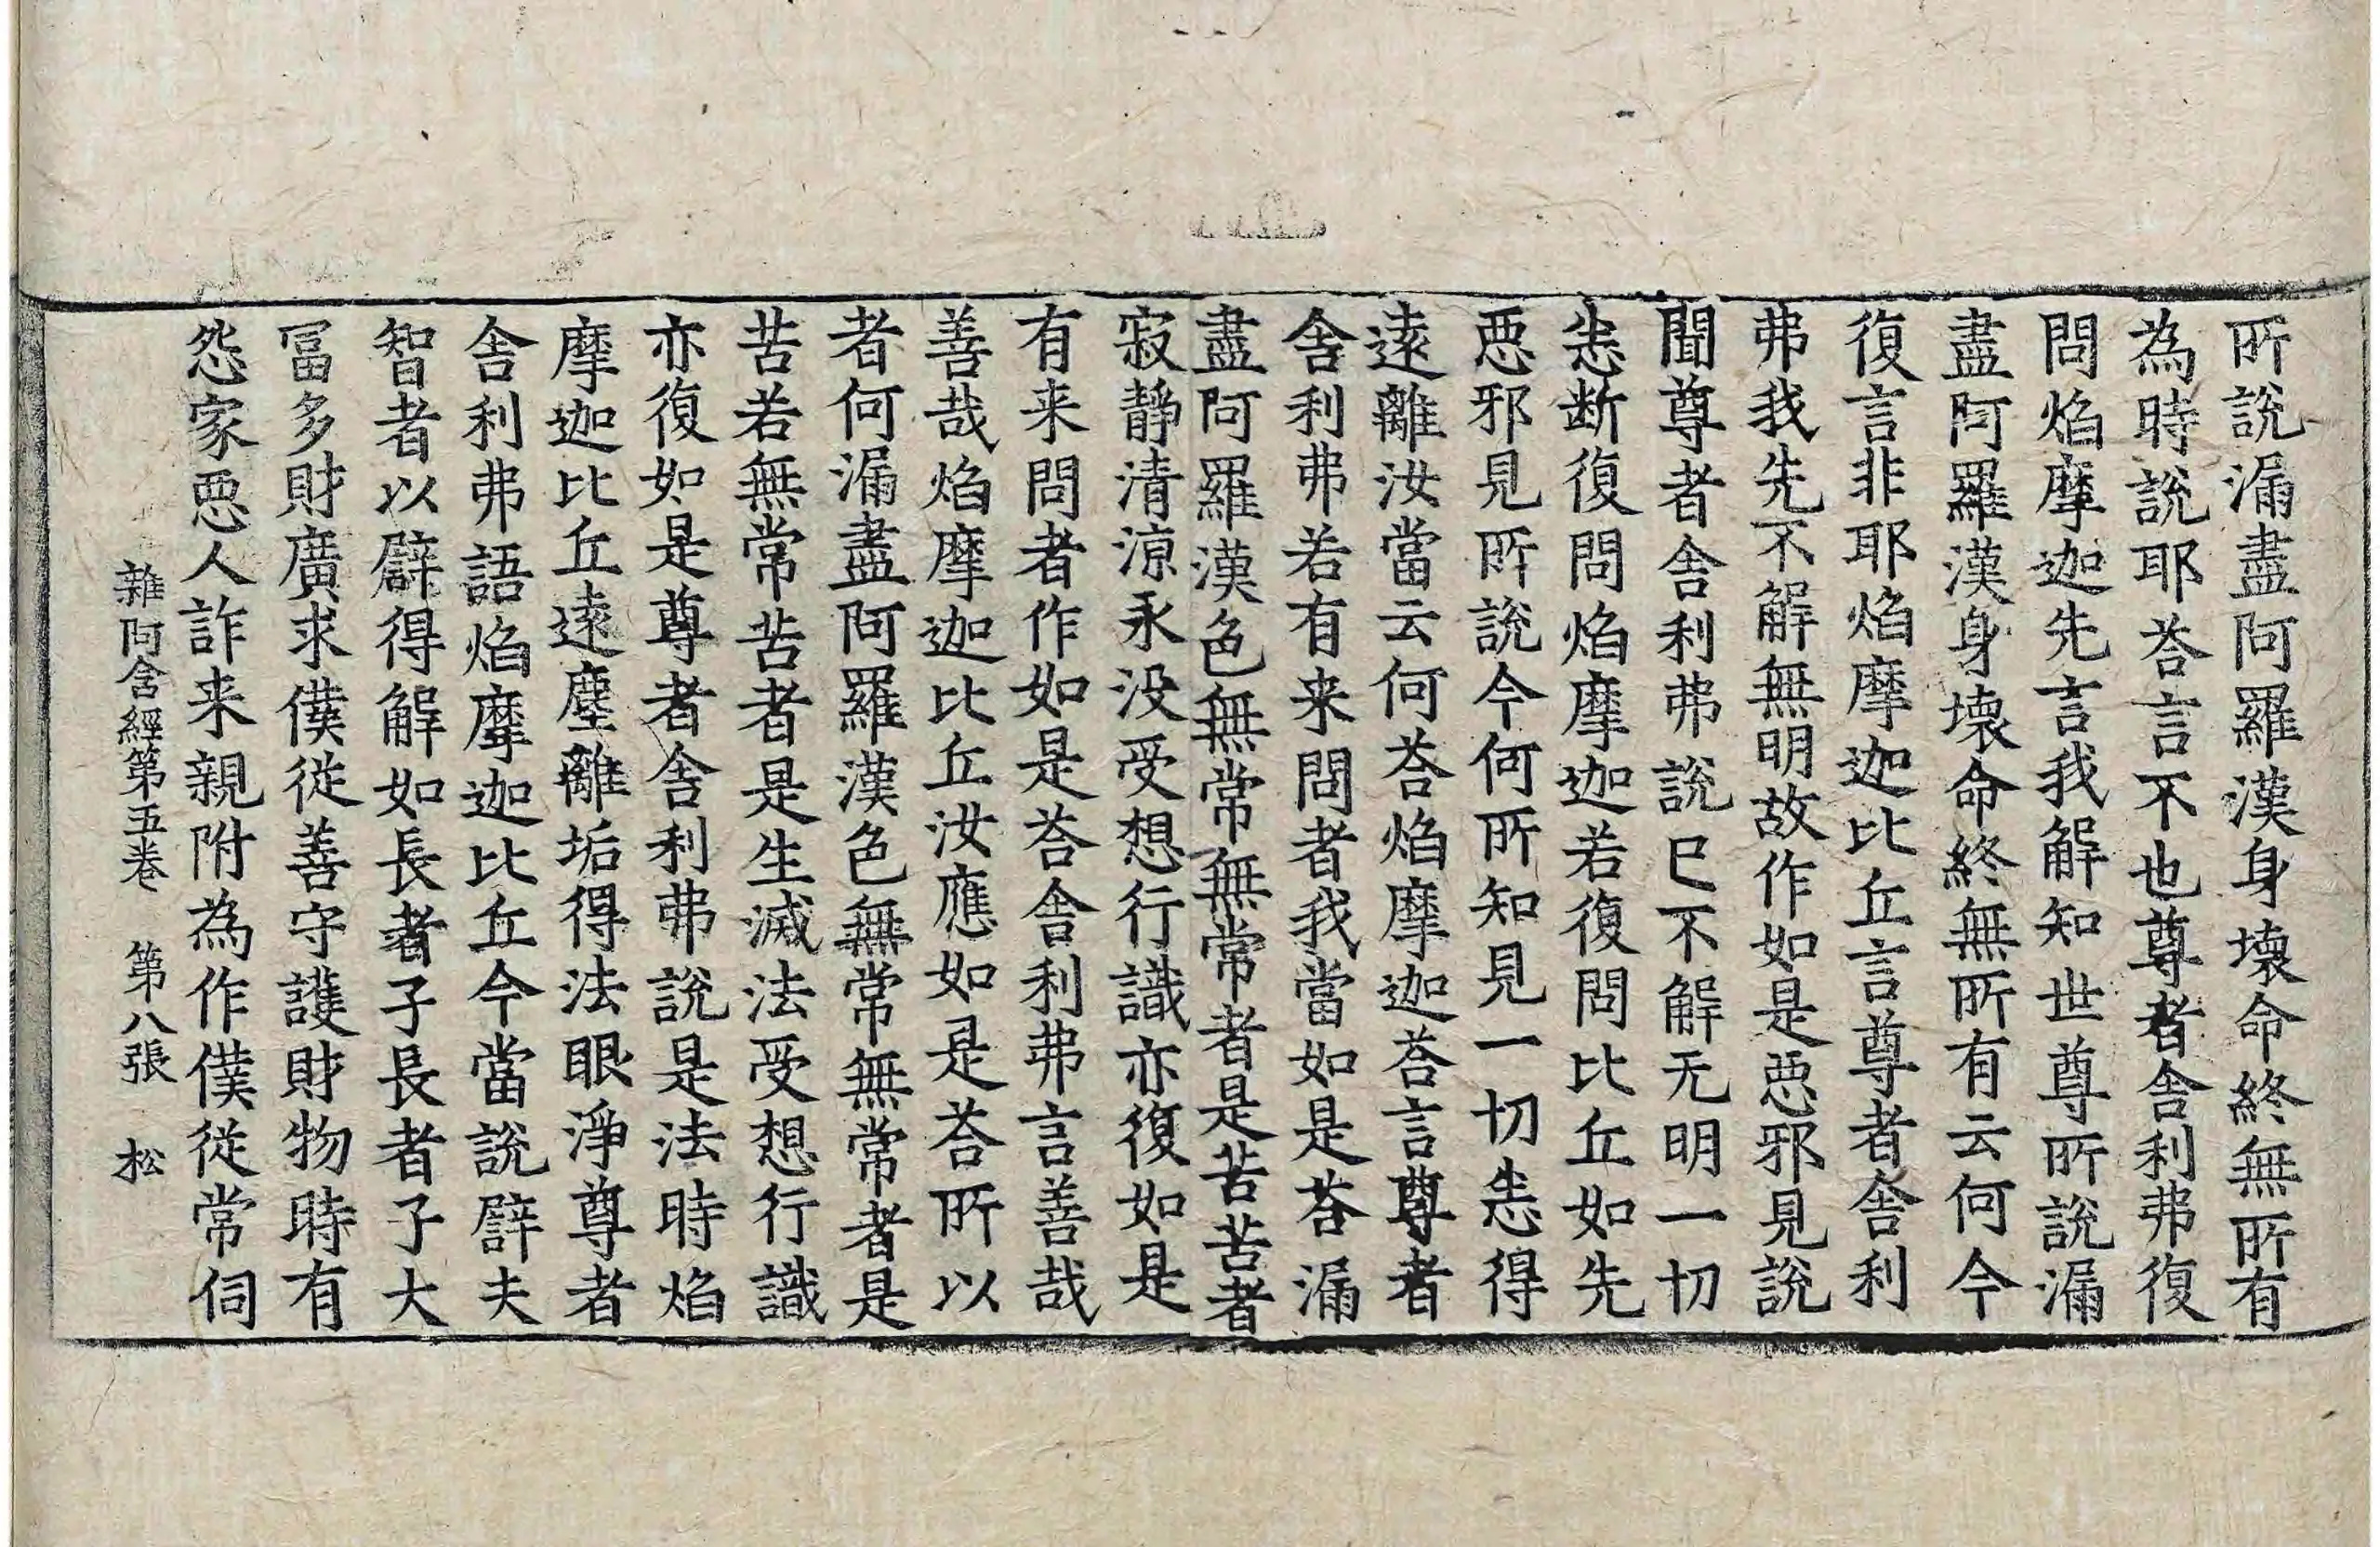 所說漏盡阿羅漢身壞命終無所有
為時說耶荅言不也尊者舍利弗復
問焰摩迦先言我解知世尊所說漏
盡阿羅漢身壞命終無所有云何今
復言非耶焰摩迦比丘言尊者舍利
弗我先不解無明故作如是惡邪見說
聞尊者舍利弗說已不解无明一切
悉断復問焰摩迦若復問比丘如先
惡邪見所說今何所知見一切悉得
遠離汝當云何荅焰摩迦荅言尊者
舍利弗若有来問者我當如是荅漏
盡阿羅漢色無常無常者是苦苦者
寂靜清涼永没受想行識亦復如是
有来問者作如是荅舍利弗言善哉
善哉焰摩迦比丘汝應如是荅所以
者何漏盡阿羅漢色無常無常者是
苦若無常苦者是生滅法受想行識
亦復如是尊者舍利弗說是法時焰
摩迦比丘遠塵離垢得法眼淨尊者
舍利弗語焰摩迦比丘今當說譬夫
智者以譬得解如長者子長者子大
冨多財廣求僕從善守護財物時有
怨家惡人詐来親附為作僕從常伺
雜阿含經第五卷 第八張 松